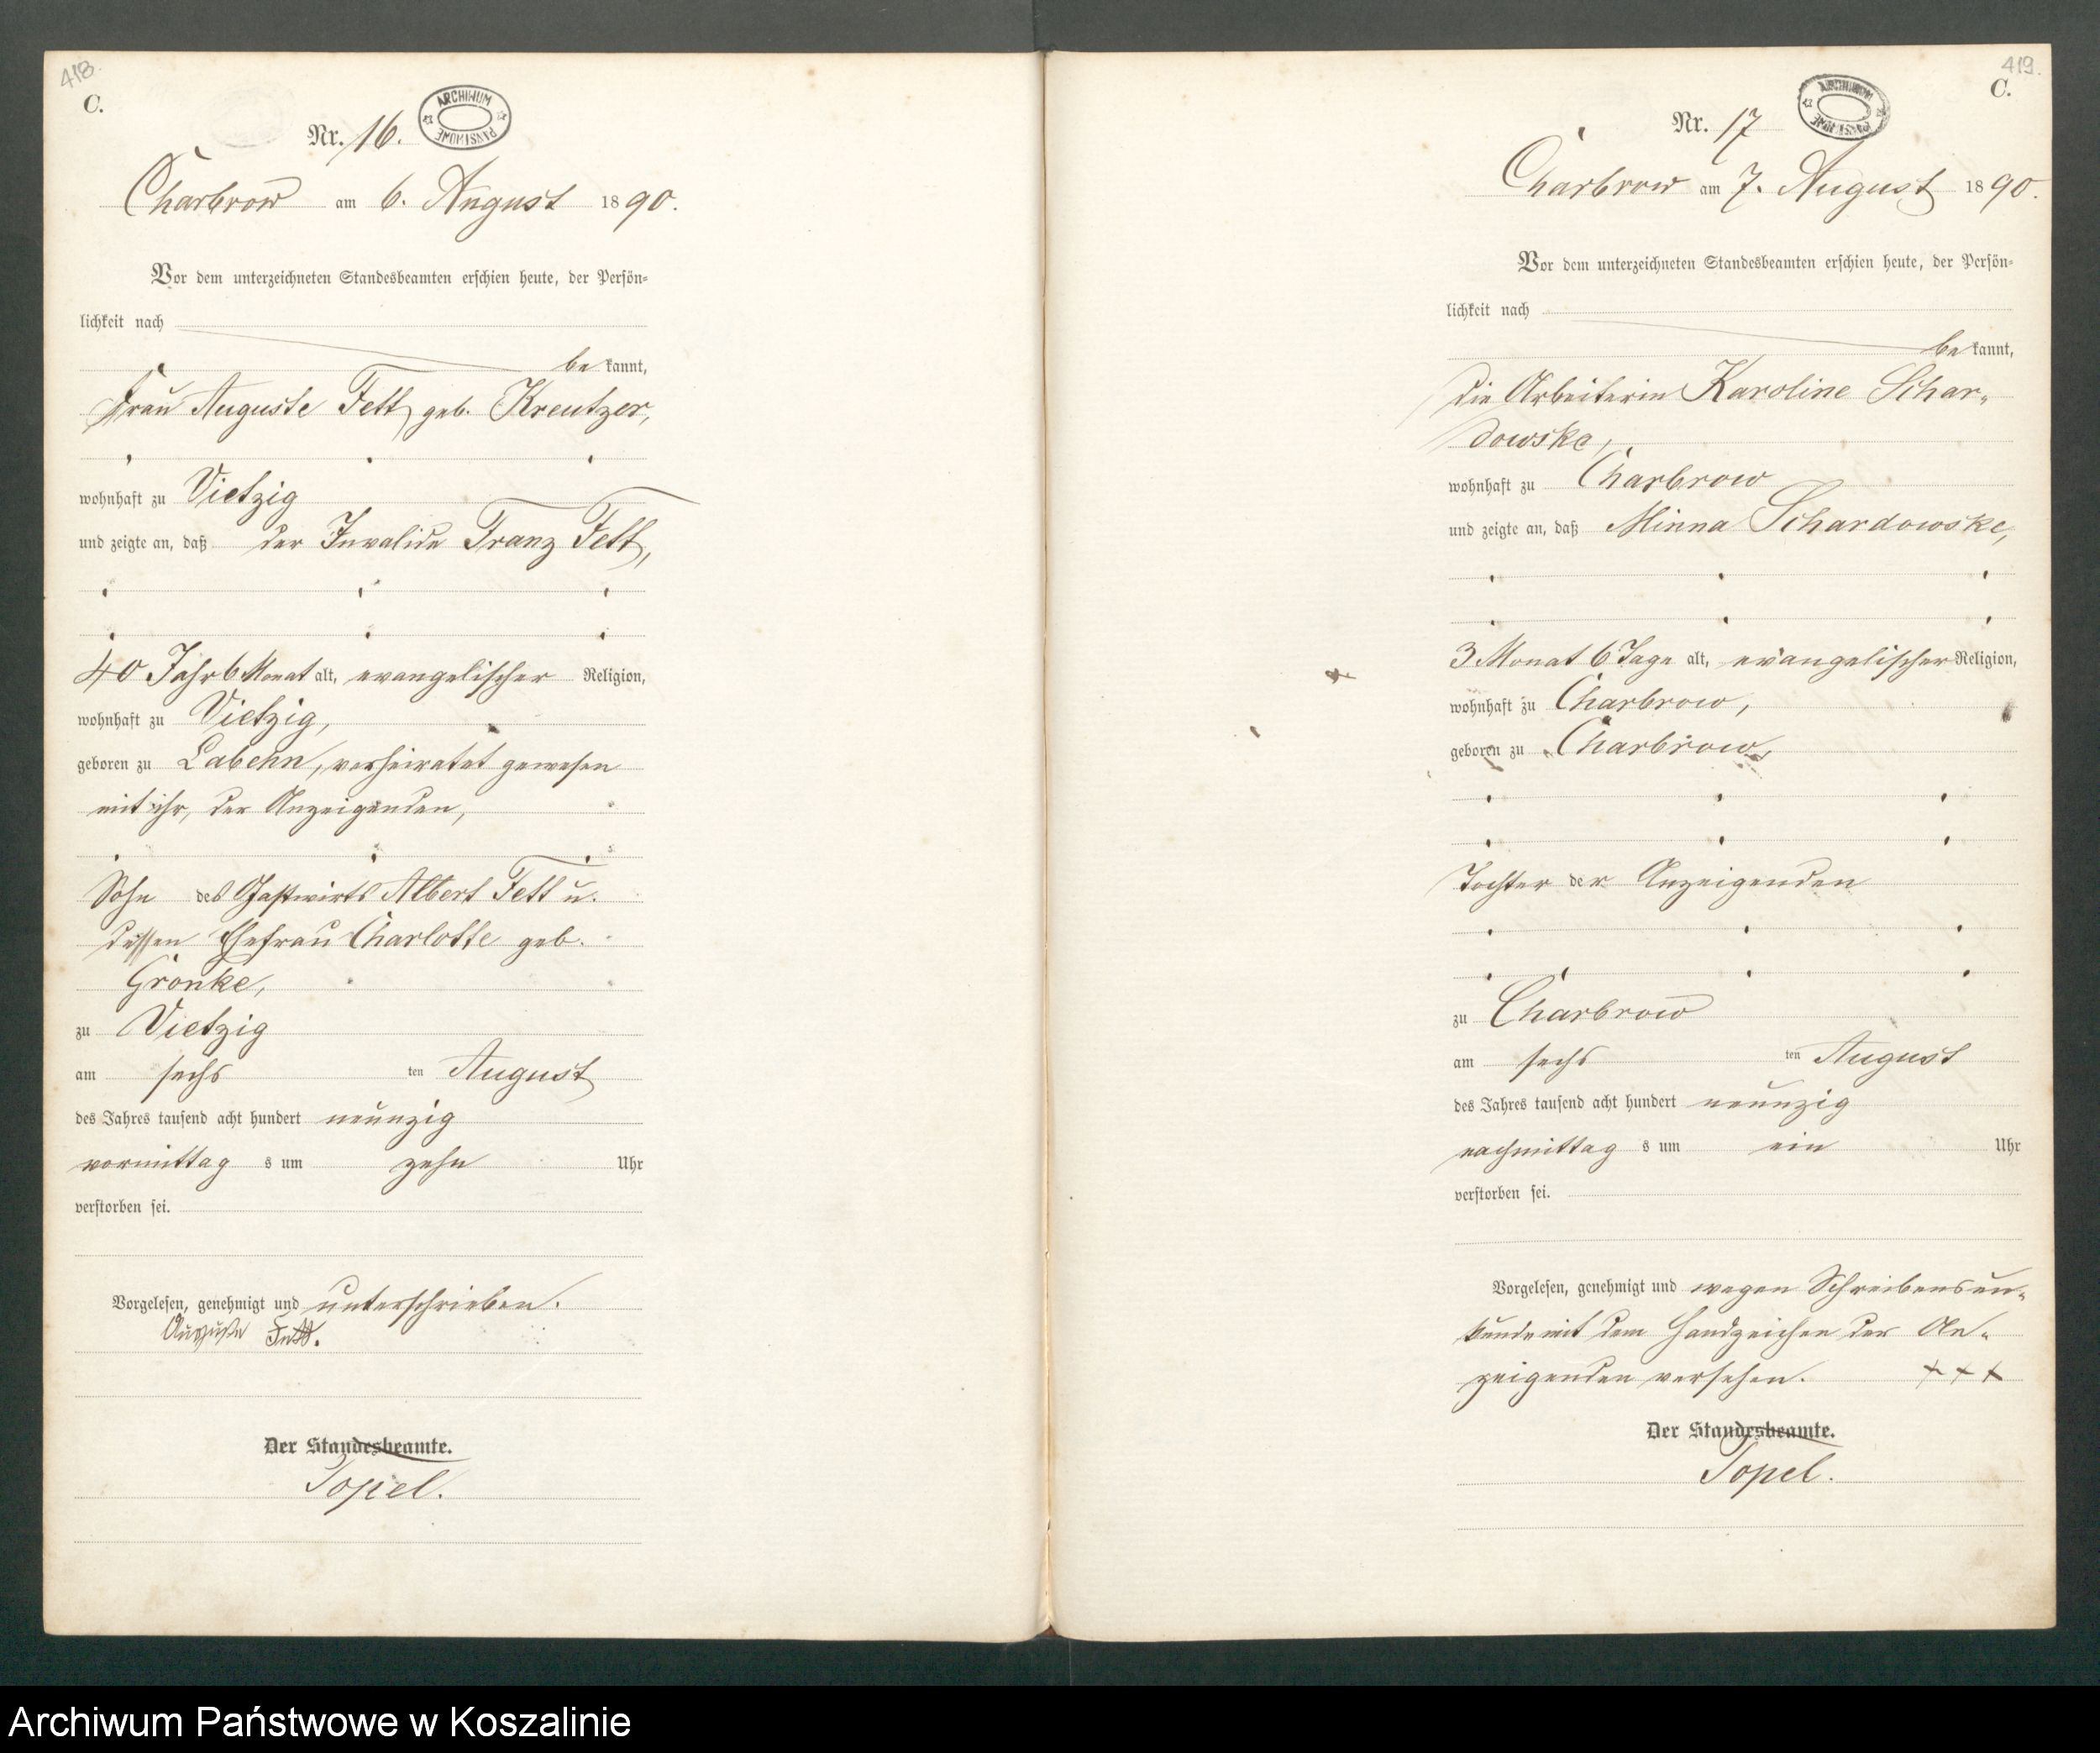 418.
C.
Nr. 16.
ARCHIWUM PAŃSTWOWE
Charbrow am 6. August 1890.
Vor dem unterzeichneten Standesbeamten erschien heute, der Persön-
lichkeit nach
be kannt,
Frau Auguste Fett geb. Kreutzer,
wohnhaft zu Vietzig
und zeigte an, daß der Invalide Franz Fett,
40 Jahr 6 Monat alt, evangelischer Religion,
wohnhaft zu Vietzig,
geboren zu Labehn, verheiratet gewesen
mit ihr, der Anzeigenden,
Sohn des Gastwirts Albert Fett u.
dessen Ehefrau Charlotte geb.
Gronke,
zu Vietzig
am sechs ten August
des Jahres tausend acht hundert neunzig
vormittag s um zehn Uhr
verstorben sei.
Vorgelesen, genehmigt und unterschrieben.
Auguste Fett.
Der Standesbeamte.
Topel.
419.
C.
Nr. 17
ARCHIWUM PAŃSTWOWE
Charbrow am 7. August 1890.
Vor dem unterzeichneten Standesbeamten erschien heute, der Persön-
lichkeit nach
be kannt,
die Arbeiterin Karoline Schar-
dowske,
wohnhaft zu Charbrow
und zeigte an, daß Minna Schardowske,
3 Monat 6 Tage alt, evangelischer Religion,
wohnhaft zu Charbrow,
geboren zu Charbrow,
Tochter der Anzeigenden
zu Charbrow
am sechs ten August
des Jahres tausend acht hundert neunzig
nachmittag s um ein Uhr
verstorben sei.
Vorgelesen, genehmigt und wegen Schreibensun-
kunde mit dem Handzeichen der An-
zeigenden versehen. + + +
Der Standesbeamte.
Topel.
Archiwum Państwowe w Koszalinie